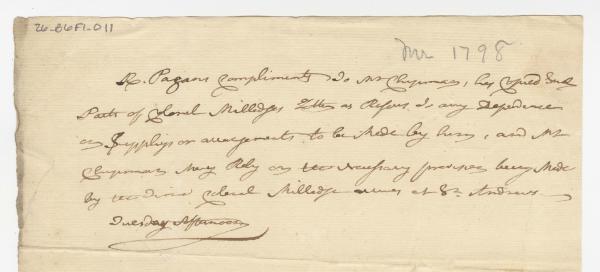 26-B6F1-011
Mr 1798
R. Pagans Compliments to Mr Chipman, has Copied Such
Parts of Colonel Milledges Letter as Refers to any Dependence
on Supplys or arrangements to be Made by him, and Mr
Chipman May Rely on the necessary provision being Made
by the time Colonel Milledge arrives at St. Andrews
Tuesday Afternoon